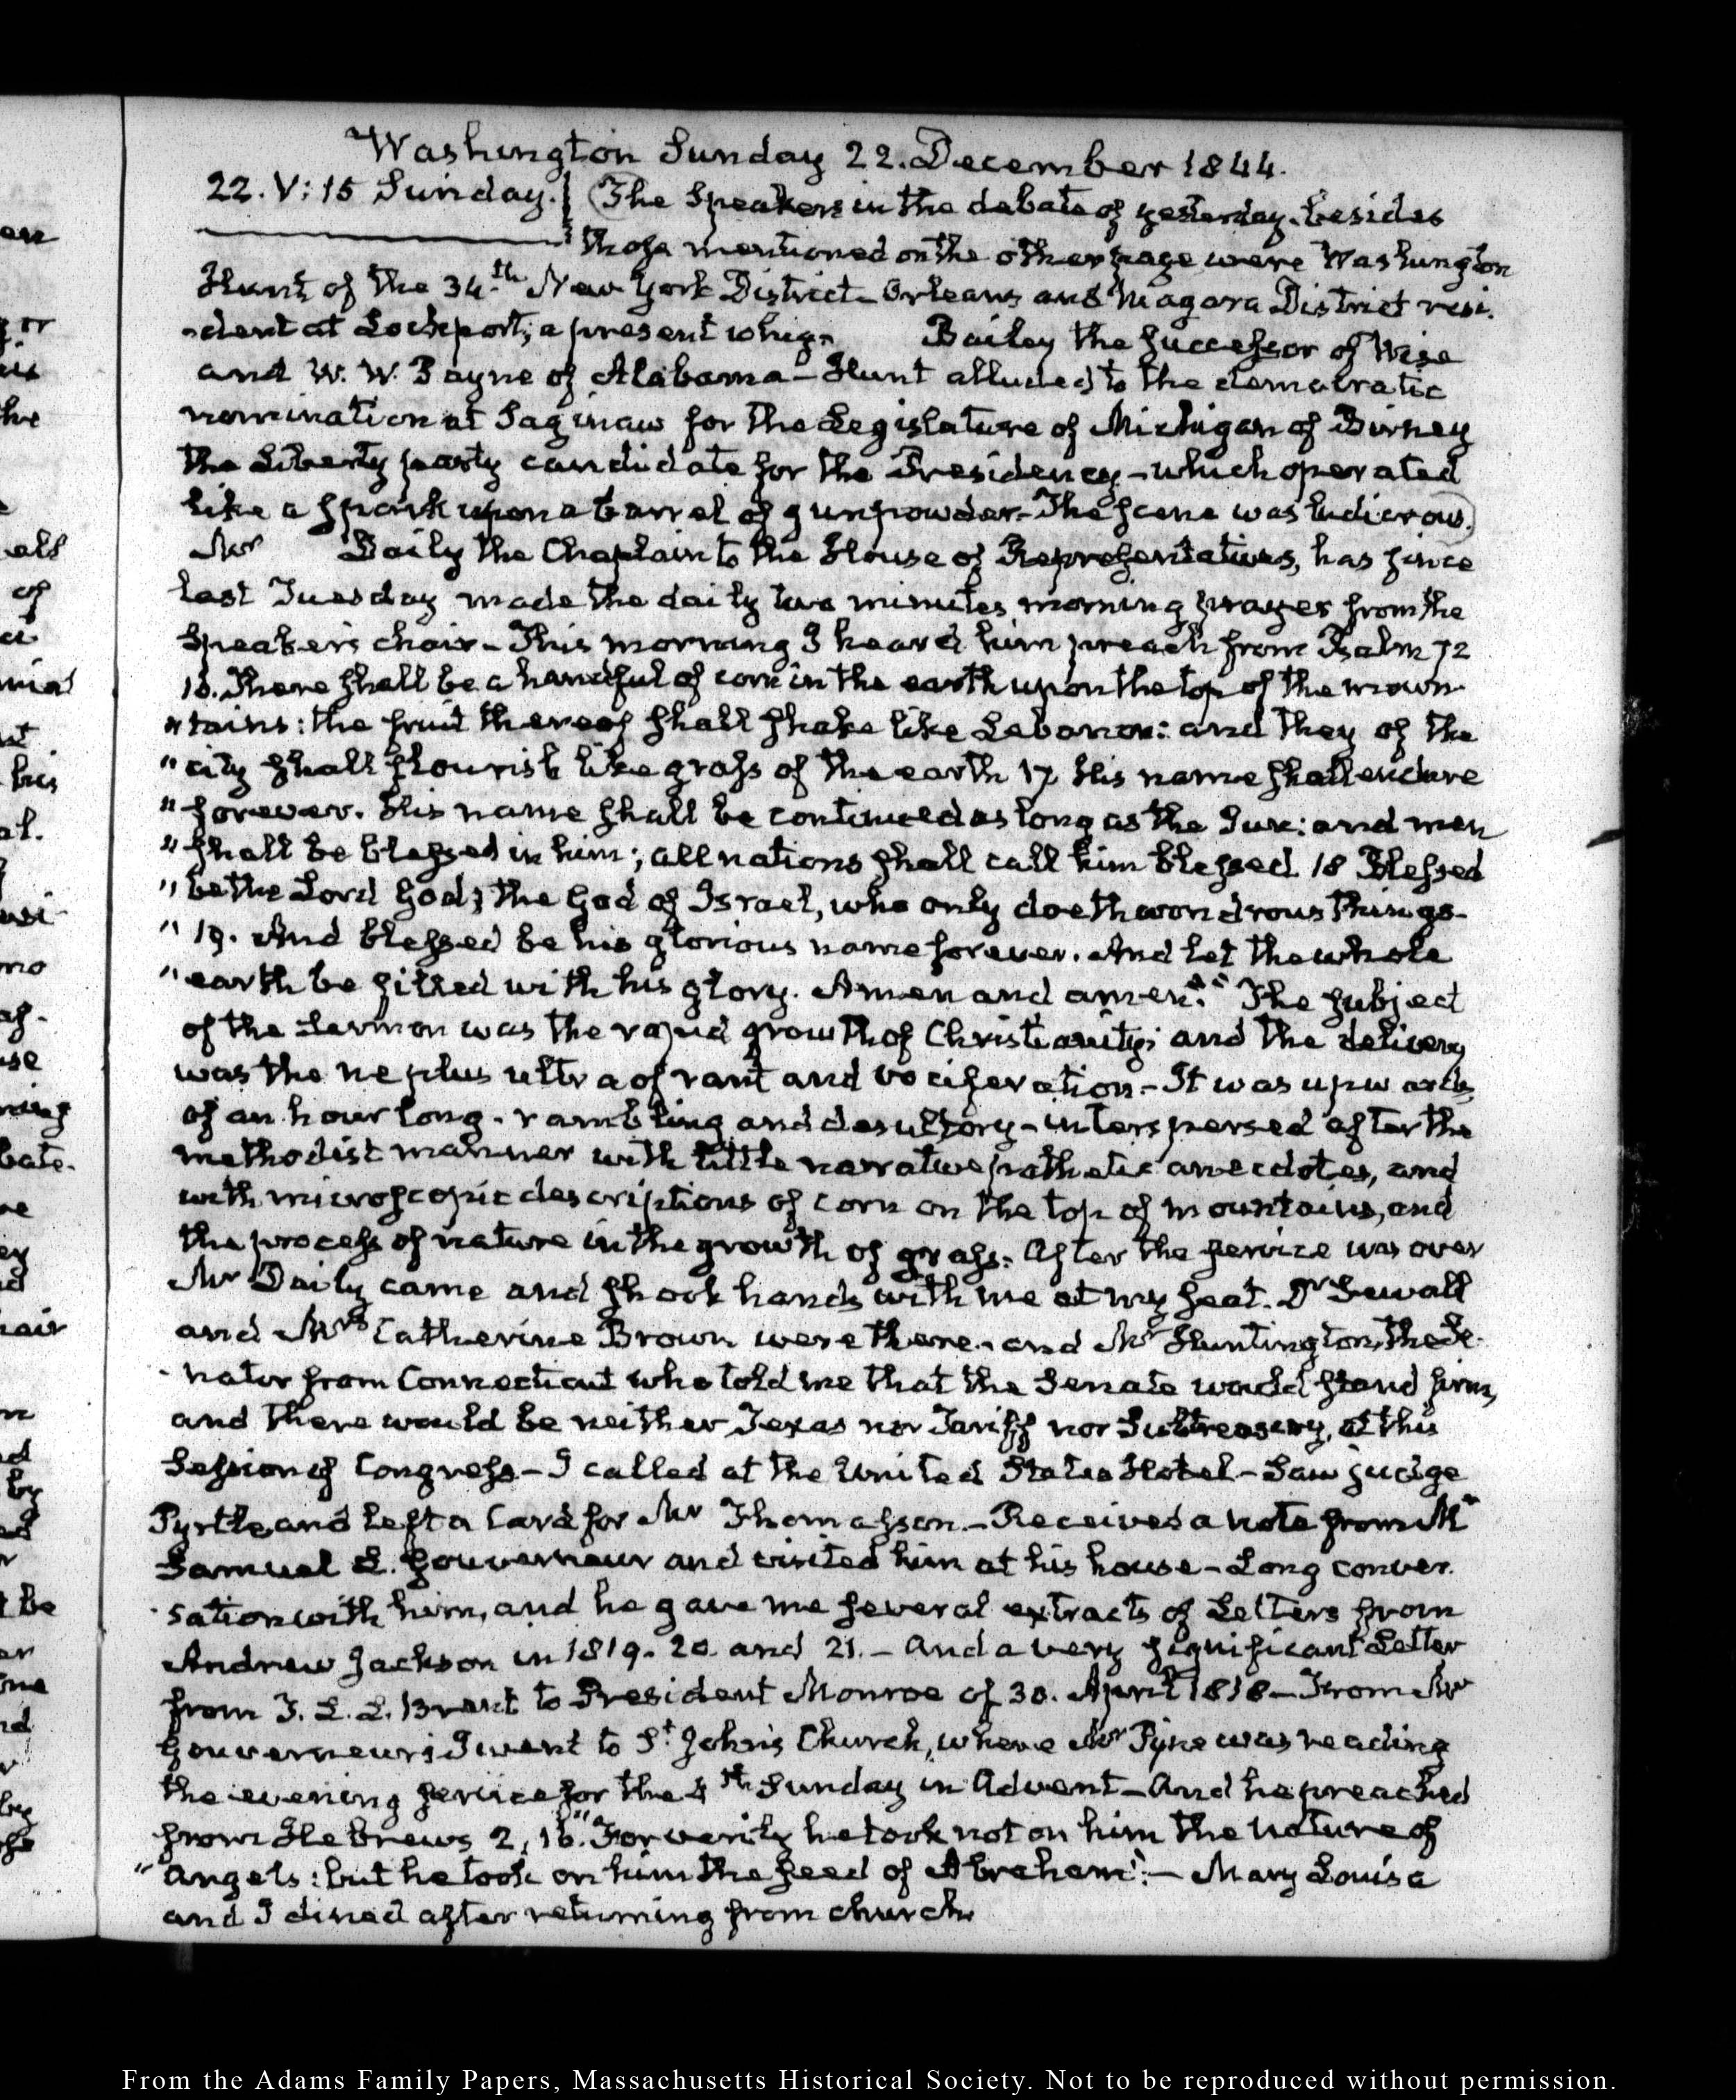 Washington Sunday 22. December 1844.
22. V: 15 Sunday. (The Speakers in the debate of yesterday, besides
those mentioned on the other page were Washington
Hunt of the 34th New York District Orleans and Niagara District resi-
-dent at Lockport, a present whig. Bailey the successor of Wise
and W. W. Payne of Alabama - Hunt alluded to the democratic
nomination at Saginaw for the Legislature of Michigan of Birney
the Liberty party candidate for the Presidency - which operated
like a spark upon a barrel of gunpowder - The scene was ludicrous.)
Mr Daily the Chaplain to the House of Representatives, has since
last Tuesday made the daily two minutes morning prayer from the
Speaker's chair - This morning I heard him preach from Psalm 72
16. There shall be a handful of corn in the earth upon the top of the moun-
"tains: the fruit thereof shall shake like Lebanon: and they of the
"city shall flourish like grass of the earth 17 His name shall endure
"forever. His name shall be continued as long as the Sun: and men
"shall be blessed in him; all nations shall call him blessed. 18 Blessed
"be the Lord God, the God of Israel, who only doeth wondrous things -
"19. And blessed be his glorious name forever. And let the whole
"earth be filled with his glory. Amen and amen." The subject
of the Sermon was the rapid growth of Christianity; and the delivery
was the ne plus ultra of rant and vociferation - It was upwards
of an hour long - rambling and desultory - interspersed after the
methodist manner with little narrative pathetic anecdotes, and
with microscopic descriptions of corn on the top of mountains, and
the process of nature in the growth of grass. After the service was over
Mr Daily came and shook hands with me at my seat. Dr Sewall
and Mrs Catherine Brown were there - and Mr Huntington, the Se-
-nator from Connecticut who told me that the Senate would stand firm,
and there would be neither Texas nor Tariff nor Subtreasury, at this
Session of Congress - I called at the United States Hotel - Saw judge
Pyrtle, and left a Card for Mr Thomasson. - Received a note from Mr
Samuel L. Gouverneur and visited him at his house - Long conver-
-sation with him, and he gave me several extracts of Letters from
Andrew Jackson in 1819. 20 and 21. - and a very significant Letter
from T. L. L. Brent to President Monroe of 30. April 1818 - From Mr
Gouverneur's I went to St John's Church, where Mr Pyne was reading
the evening service for the 4th Sunday in Advent - And he preached
from Hebrews 2, 16. "For verily he took not on him the nature of
"Angels: but he took on him the seed of Abraham". - Mary Louisa
and I dined after returning from church
From the Adams Family Papers, Massachusetts Historical Society. Not to be reproduced without permission.